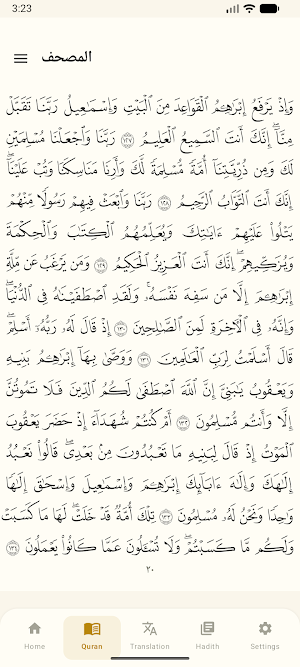 3:23
المصحف
وَإِذْ يَرْفَعُ إِبْرَٰهِـۧمُ ٱلْقَوَاعِدَ مِنَ ٱلْبَيْتِ وَإِسْمَـٰعِيلُ رَبَّنَا تَقَبَّلْ
مِنَّآ ۖ إِنَّكَ أَنتَ ٱلسَّمِيعُ ٱلْعَلِيمُ ١٢٧ رَبَّنَا وَٱجْعَلْنَا مُسْلِمَيْنِ
لَكَ وَمِن ذُرِّيَّتِنَآ أُمَّةً مُّسْلِمَةً لَّكَ وَأَرِنَا مَنَاسِكَنَا وَتُبْ عَلَيْنَآ ۖ
إِنَّكَ أَنتَ ٱلتَّوَّابُ ٱلرَّحِيمُ ١٢٨ رَبَّنَا وَٱبْعَثْ فِيهِمْ رَسُولًا مِّنْهُمْ
يَتْلُوا۟ عَلَيْهِمْ ءَايَـٰتِكَ وَيُعَلِّمُهُمُ ٱلْكِتَـٰبَ وَٱلْحِكْمَةَ
وَيُزَكِّيهِمْ ۚ إِنَّكَ أَنتَ ٱلْعَزِيزُ ٱلْحَكِيمُ ١٢٩ وَمَن يَرْغَبُ عَن مِّلَّةِ
إِبْرَٰهِـۧمَ إِلَّا مَن سَفِهَ نَفْسَهُۥ ۚ وَلَقَدِ ٱصْطَفَيْنَـٰهُ فِى ٱلدُّنْيَا ۖ
وَإِنَّهُۥ فِى ٱلْـَٔاخِرَةِ لَمِنَ ٱلصَّـٰلِحِينَ ١٣٠ إِذْ قَالَ لَهُۥ رَبُّهُۥٓ أَسْلِمْ ۖ
قَالَ أَسْلَمْتُ لِرَبِّ ٱلْعَـٰلَمِينَ ١٣١ وَوَصَّىٰ بِهَآ إِبْرَٰهِـۧمُ بَنِيهِ
وَيَعْقُوبُ يَـٰبَنِىَّ إِنَّ ٱللَّهَ ٱصْطَفَىٰ لَكُمُ ٱلدِّينَ فَلَا تَمُوتُنَّ
إِلَّا وَأَنتُم مُّسْلِمُونَ ١٣٢ أَمْ كُنتُمْ شُهَدَآءَ إِذْ حَضَرَ يَعْقُوبَ
ٱلْمَوْتُ إِذْ قَالَ لِبَنِيهِ مَا تَعْبُدُونَ مِنۢ بَعْدِى ۖ قَالُوا۟ نَعْبُدُ
إِلَـٰهَكَ وَإِلَـٰهَ ءَابَآئِكَ إِبْرَٰهِـۧمَ وَإِسْمَـٰعِيلَ وَإِسْحَـٰقَ إِلَـٰهًا
وَٰحِدًا وَنَحْنُ لَهُۥ مُسْلِمُونَ ١٣٣ تِلْكَ أُمَّةٌ قَدْ خَلَتْ ۖ لَهَا مَا كَسَبَتْ
وَلَكُم مَّا كَسَبْتُمْ ۖ وَلَا تُسْـَٔلُونَ عَمَّا كَانُوا۟ يَعْمَلُونَ ١٣٤
٢٠
Home Quran Translation Hadith Settings